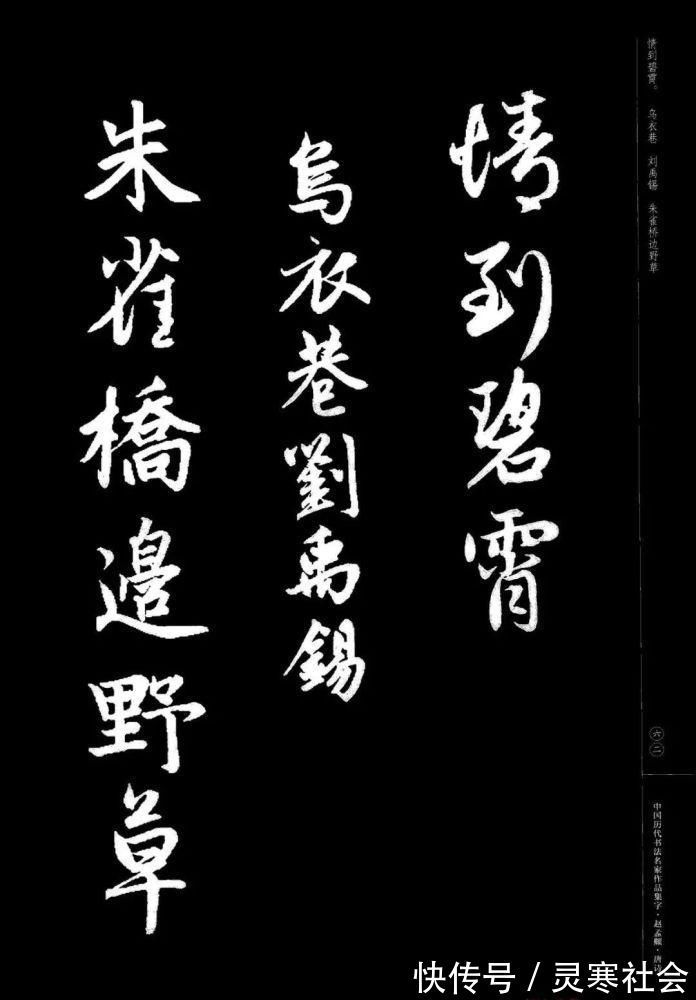 情到碧霄
烏衣巷劉禹錫
朱雀橋邊野草
情到碧霄。 乌衣巷 刘禹锡 朱雀桥边野草
六二
中国历代书法名家作品集字·赵孟頫·唐诗
快传号/灵寒社会